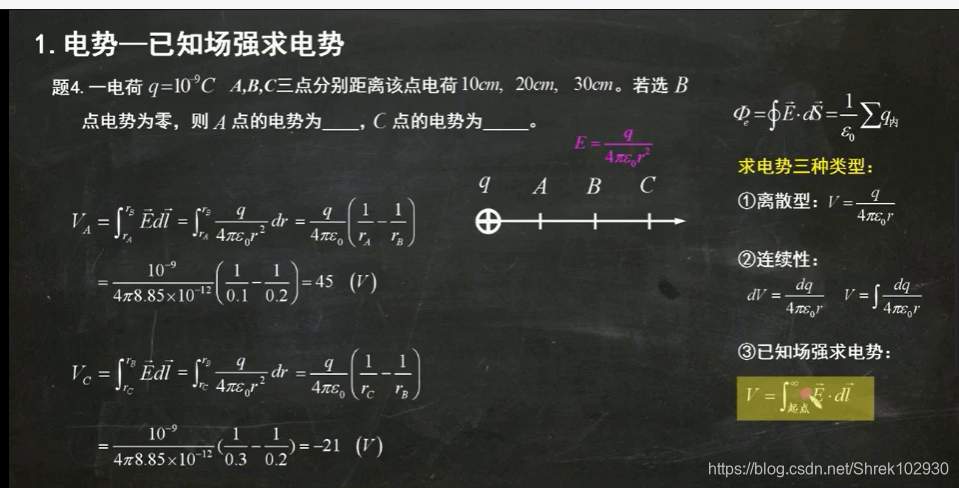 1.电势—已知场强求电势
题4.一电荷 q=10⁻⁹C A,B,C三点分别距离该点电荷10cm, 20cm, 30cm。若选 B
点电势为零，则 A 点的电势为____，C 点的电势为_____。
E = q/(4πε₀r²)
q A B C
V_A = ∫_{r_A}^{r_B} E⃗dl⃗ = ∫_{r_A}^{r_B} q/(4πε₀r²) dr = q/(4πε₀) (1/r_A − 1/r_B)
= 10⁻⁹/(4π8.85×10⁻¹²) (1/0.1 − 1/0.2) = 45 (V)
V_C = ∫_{r_C}^{r_B} E⃗dl⃗ = ∫_{r_C}^{r_B} q/(4πε₀r²) dr = q/(4πε₀) (1/r_C − 1/r_B)
= 10⁻⁹/(4π8.85×10⁻¹²) (1/0.3 − 1/0.2) = −21 (V)
Φ_e = ∮E⃗·dS⃗ = 1/ε₀ ∑q内
求电势三种类型：
①离散型：V = q/(4πε₀r)
②连续性：
dV = dq/(4πε₀r) V = ∫ dq/(4πε₀r)
③已知场强求电势：
V = ∫_{起点}^{∞} E⃗·dl⃗
https://blog.csdn.net/Shrek102930